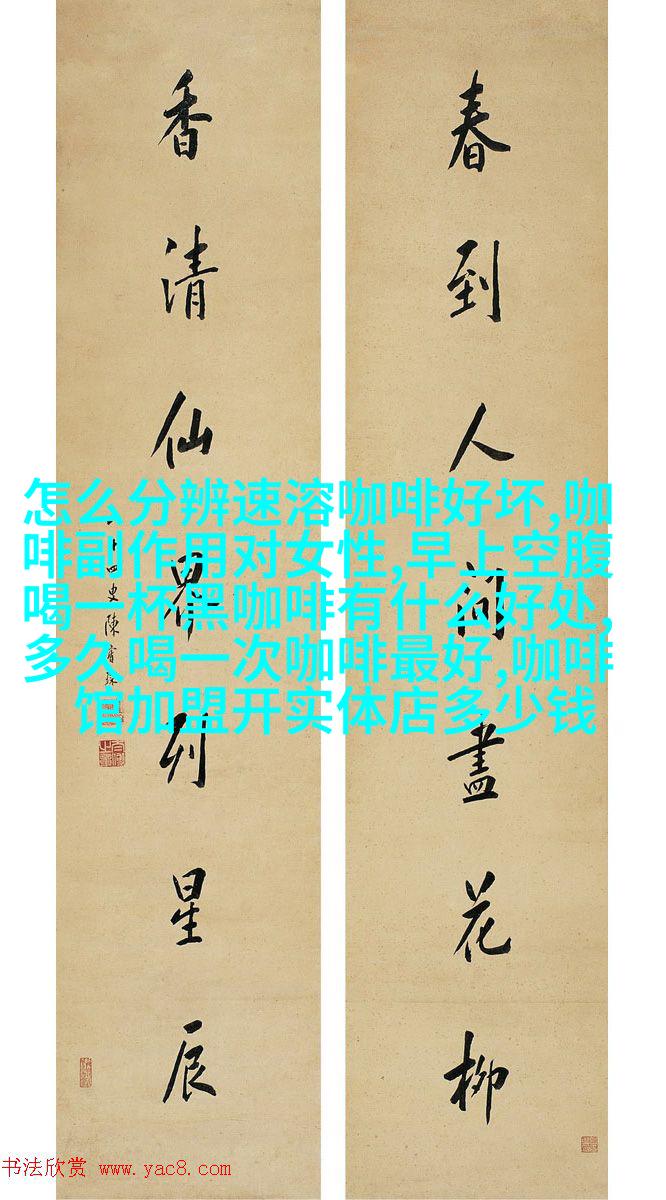 春到人間盡花柳
香清仙界列星辰
四叟陳
怎么分辨速溶咖啡好坏,咖
啡副作用对女性,早上空腹
喝一杯黑咖啡有什么好处,
多久喝一次咖啡最好,咖啡
馆加盟开实体店多少钱
书法欣赏 www.yac8.com